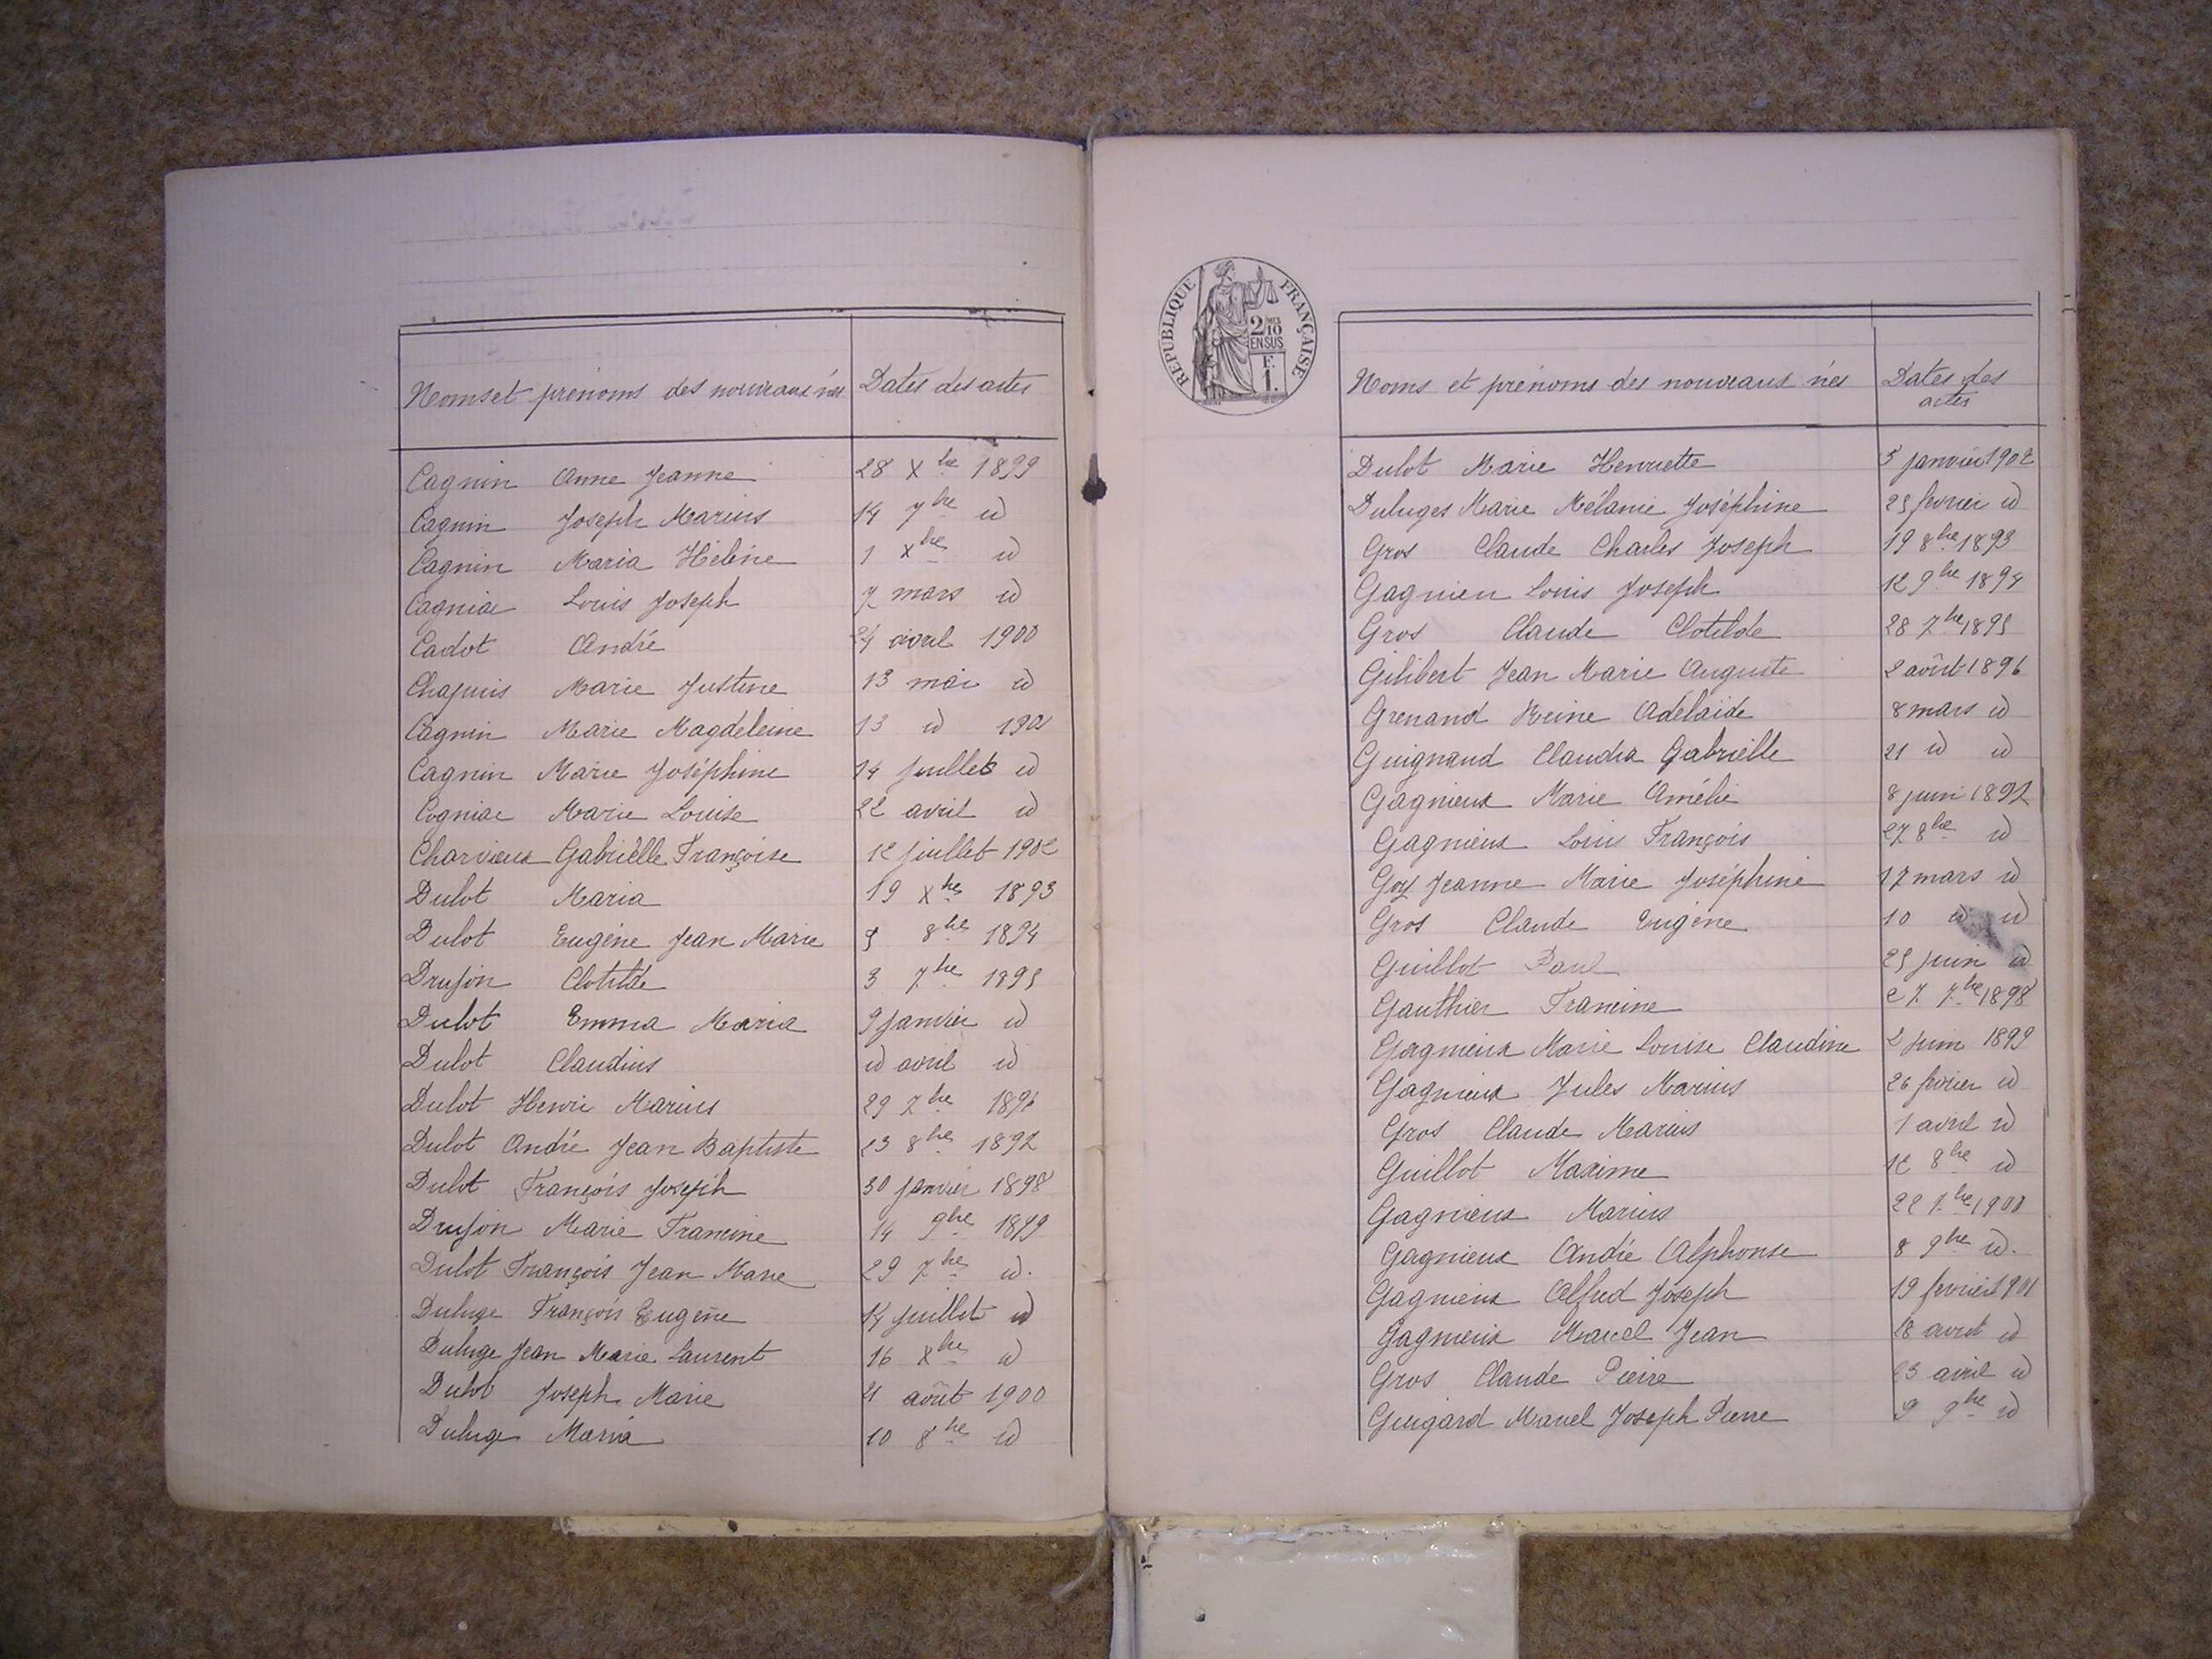 Noms et prénoms des nouveaux nés Dates des actes
Cagnin Anne Jeanne 28 Xbre 1899
Cagnin Joseph Marius 14 7bre id
Cagnin Maria Hélène 1 Xbre id
Cagniac Louis Joseph 7 mars id
Cadot André 24 avril 1900
Chapuis Marie Justine 13 mai id
Cagnin Marie Magdeleine 13 id 1901
Cagnin Marie Joséphine 14 juillet id
Cogniac Marie Louise 22 avril id
Charvieux Gabrielle Françoise 12 juillet 1902
Dulot Maria 19 Xbre 1893
Dulot Eugène Jean Marie 5 8bre 1894
Drujon Clotilde 3 7bre 1895
Dulot Emma Maria 9 janvier id
Dulot Claudius id avril id
Dulot Henri Marius 29 7bre 1896
Dulot André Jean Baptiste 23 8bre 1897
Dulot François Joseph 30 janvier 1898
Drujon Marie Francine 14 9bre 1899
Dulot François Jean Marie 29 7bre id.
Duluge François Eugène 14 juillet id
Duluge Jean Marie Laurent 16 Xbre id
Dulot Joseph Marie 21 août 1900
Duluge Maria 10 8bre id
RÉPUBLIQUE FRANÇAISE
2/10 MES
EN SUS
F.
1.
Noms et prénoms des nouveaux nés Dates des
actes
Dulot Marie Henriette 5 janvier 1902
Duluges Marie Mélanie Joséphine 25 février id
Gros Claude Charles Joseph 19 8bre 1893
Gagnieu Louis Joseph 12 9bre 1894
Gros Claude Clotilde 28 7bre 1895
Gilibert Jean Marie Auguste 2 août 1896
Grenand Reine Adélaïde 8 mars id
Guignand Claudia Gabrielle 21 id id
Gagnieux Marie Amélie 8 juin 1897
Gagnieux Louis François 27 8bre id
Goy Jeanne Marie Joséphine 17 mars id
Gros Claude Eugène 10 id id
Guillot Paul 25 juin id
Gauthier Francine 27 7bre 1898
Gagnieux Marie Louise Claudine 2 juin 1899
Gagnieux Jules Marius 26 février id
Gros Claude Marius 1 avril id
Guillot Maxime 12 8bre id
Gagnieux Marius 22 7bre 1900
Gagnieux André Alphonse 8 9bre id.
Gagnieux Alfred Joseph 19 février 1901
Gagnieux Marcel Jean 18 août id
Gros Claude Pierre 23 avril id
Guigard Marcel Joseph Pierre 9 9bre id